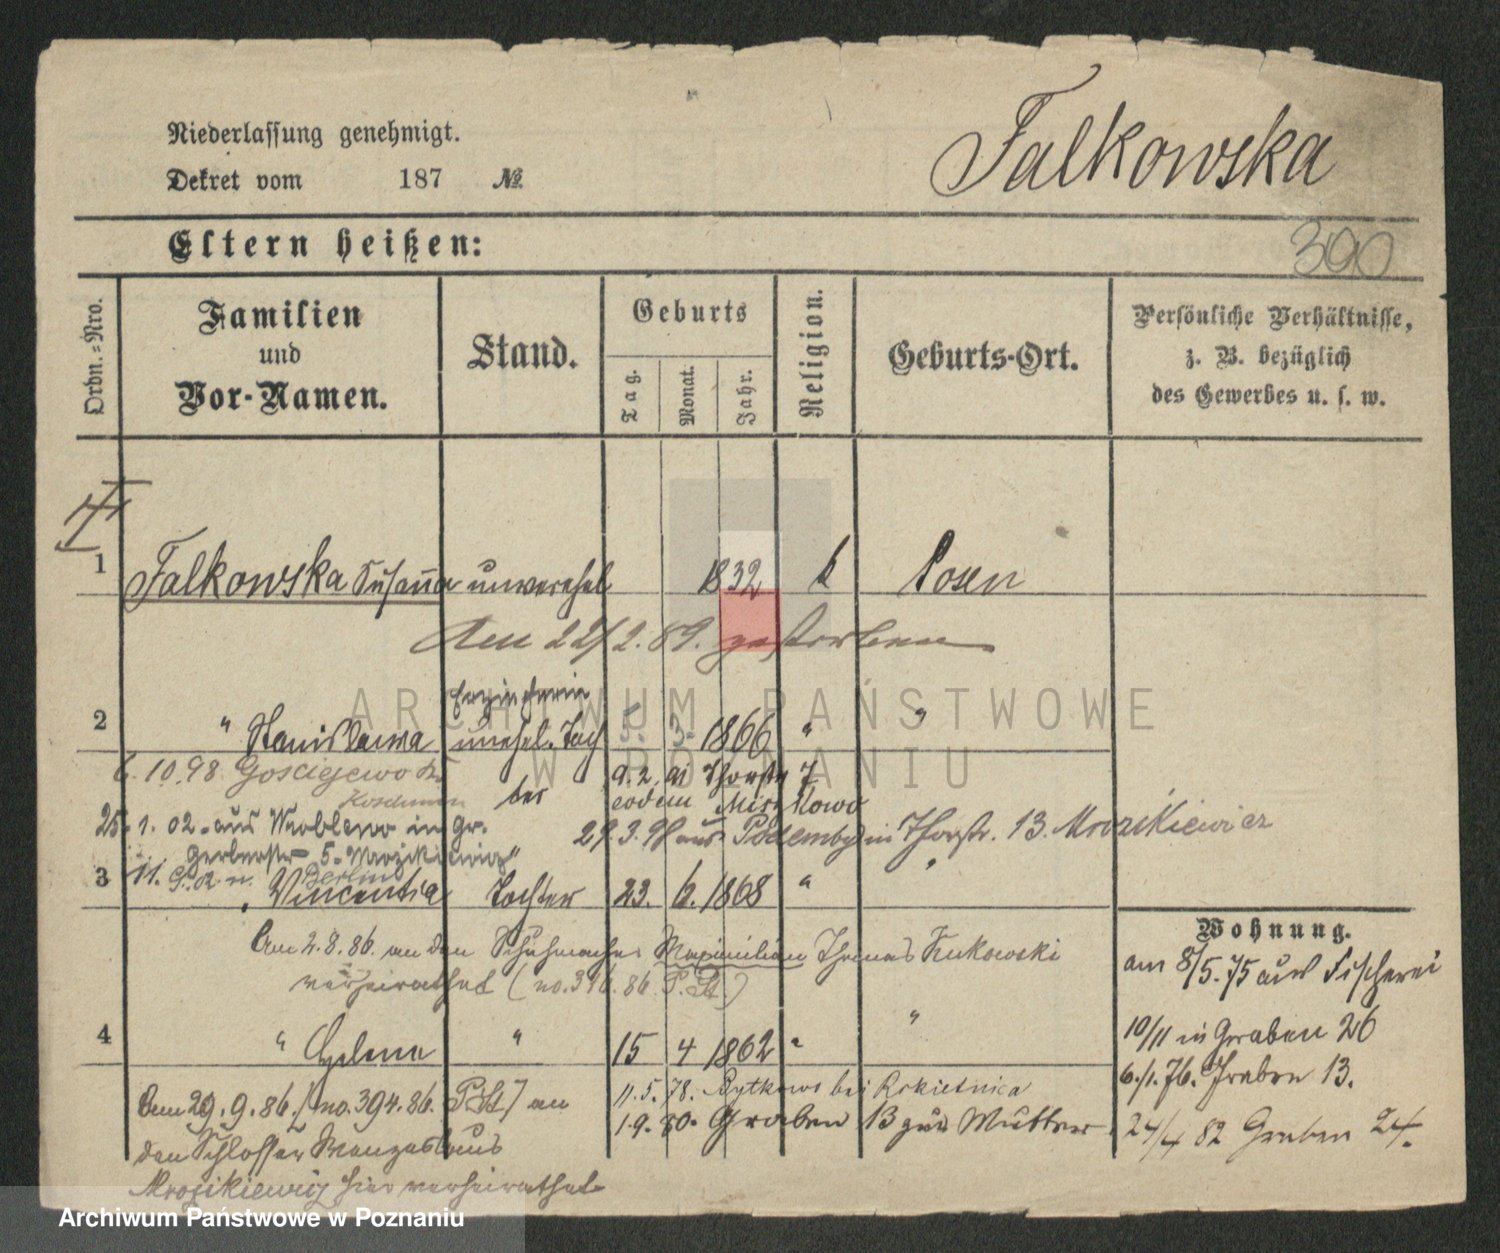 Niederlassung genehmigt.
Dekret vom 187 №
Falkowska
Eltern heißen:
390
Ordn.-Nro.
Familien
und
Vor-Namen.
Stand.
Geburts
Tag.
Monat.
Jahr.
Religion.
Geburts-Ort.
Persönliche Verhältnisse,
z. B. bezüglich
des Gewerbes u. s. w.
1 Falkowska Susanna unverehel 1832 k Posen
Am 22/2. 89. gestorben
Erzieherin
2 " Stanislawa unehel. Toch 5. 3. 1866 " "
6. 10. 98 Gosciejewo
Koschmin
ter
9. 2. 91 Thorstr 7
eodem Mirkowo
25. 1. 02. aus Wroblewo in Gr.
Gerberstr 5. Mrozikiewicz"
29. 3. 98 aus Podemby in Thorstr. 13. Mrozikiewicz
11. 9. 02 n. Berlin
3 " Vincentia Tochter 23. 6. 1868 " "
Am 2. 8. 86. an den Schuhmacher Maximilian Thomas Kukowski
verheirathet (no. 316. 86. P. St.)
4 " Helene " 15 4 1862 " "
Am 29. 9. 86. (no. 394. 86. P St) an
den Schlosser Wenzeslaus
Mrozikiewicz hier verheirathet
11. 5. 78. Rytkowo bei Rokietnica
1. 9. 80. Graben 13 zur Mutter
Wohnung.
am 8/5. 75 aus Fischerei
10/11 in Graben 26
6./1. 76. Graben 13.
24/4 82 Graben 24.
ARCHIWUM PAŃSTWOWE
W POZNANIU
Archiwum Państwowe w Poznaniu